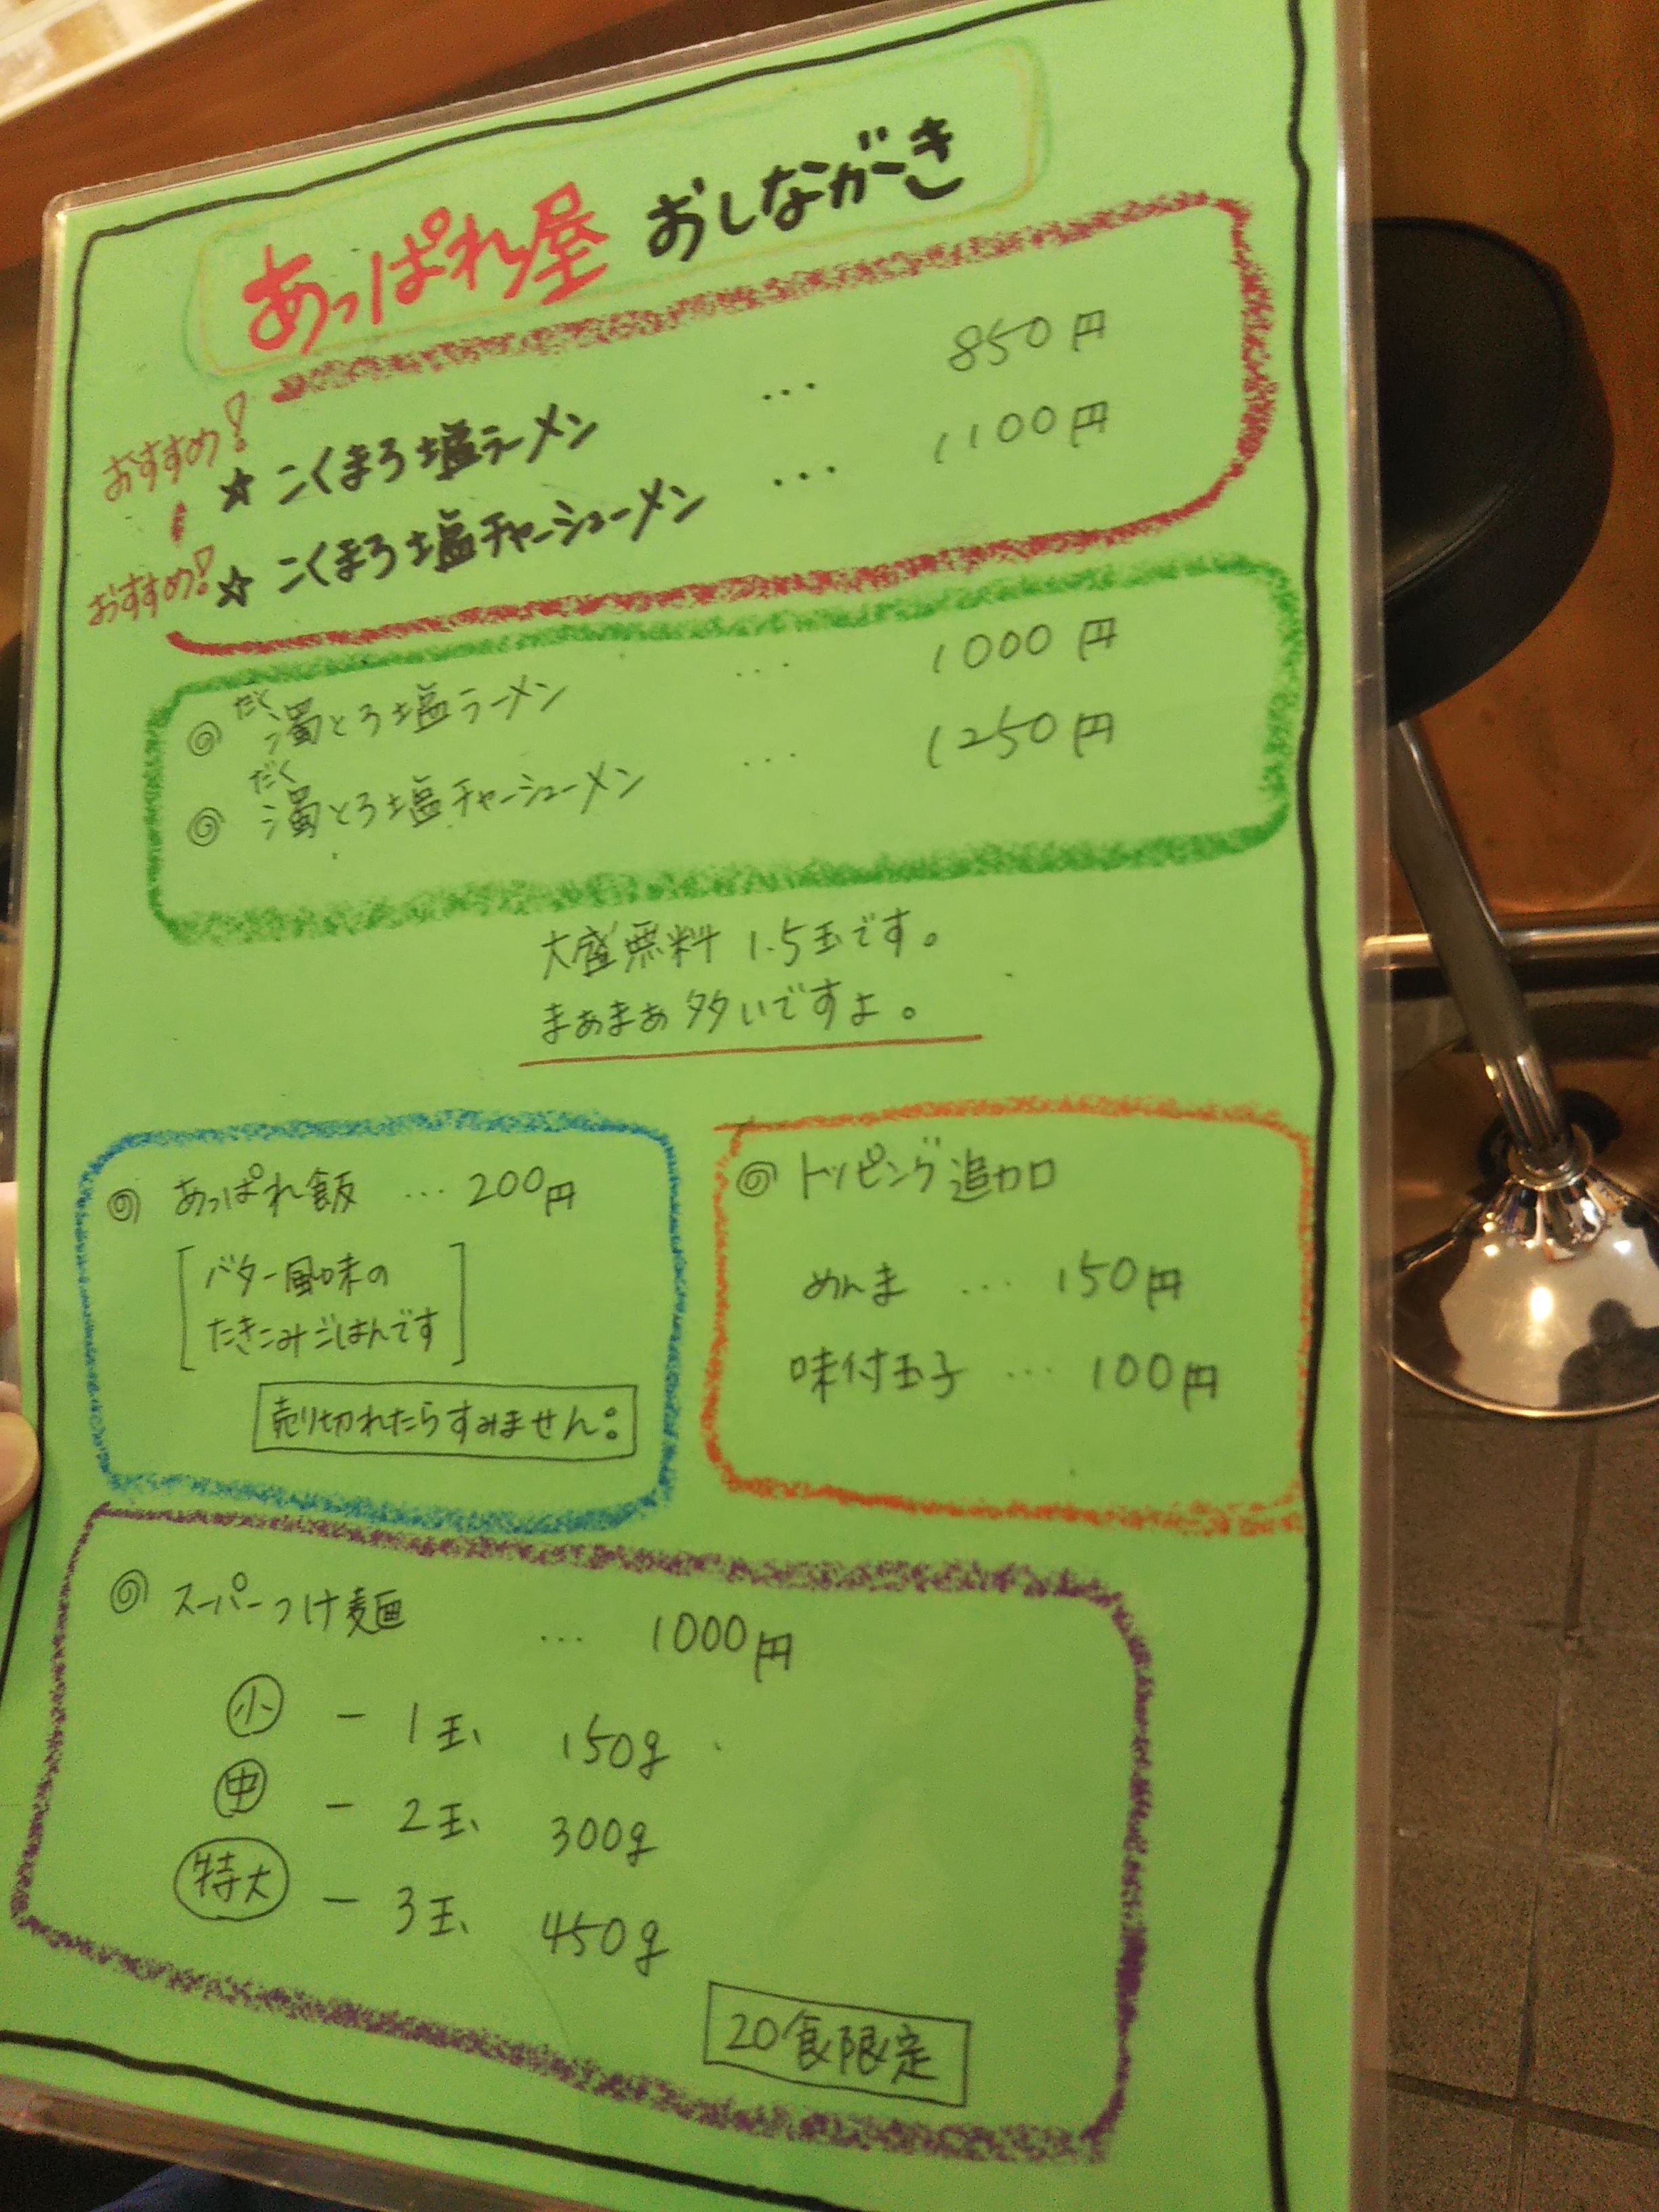 あっぱれ屋 おしながき
おすすめ! ☆ こくまろ塩ラーメン … 850円
おすすめ! ☆ こくまろ塩チャーシューメン … 1100円
だく
◎ 濁とろ塩ラーメン … 1000円
だく
◎ 濁とろ塩チャーシューメン … 1250円
大盛無料 1.5玉です。
まぁまぁ多いですよ。
◎ あっぱれ飯 … 200円
[バター風味の
たきこみごはんです]
売り切れたらすみません。
◎ トッピング追加
めんま … 150円
味付玉子 … 100円
◎ スーパーつけ麺 … 1000円
小 ー 1玉 150g
中 ー 2玉 300g
特大 ー 3玉 450g
20食限定